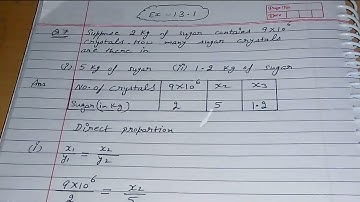 Ex-13.1
Page No.
Date
Q3 Suppose 2 kg of sugar contains 9×10⁶
crystals. How many sugar crystals
are there in
(i) 5 kg of sugar (ii) 1.2 kg of sugar
Ans No. of crystals 9×10⁶ x2 x3
Sugar (in kg) 2 5 1.2
Direct proportion
(i) x1/y1 = x2/y2
9×10⁶/2 = x2/5